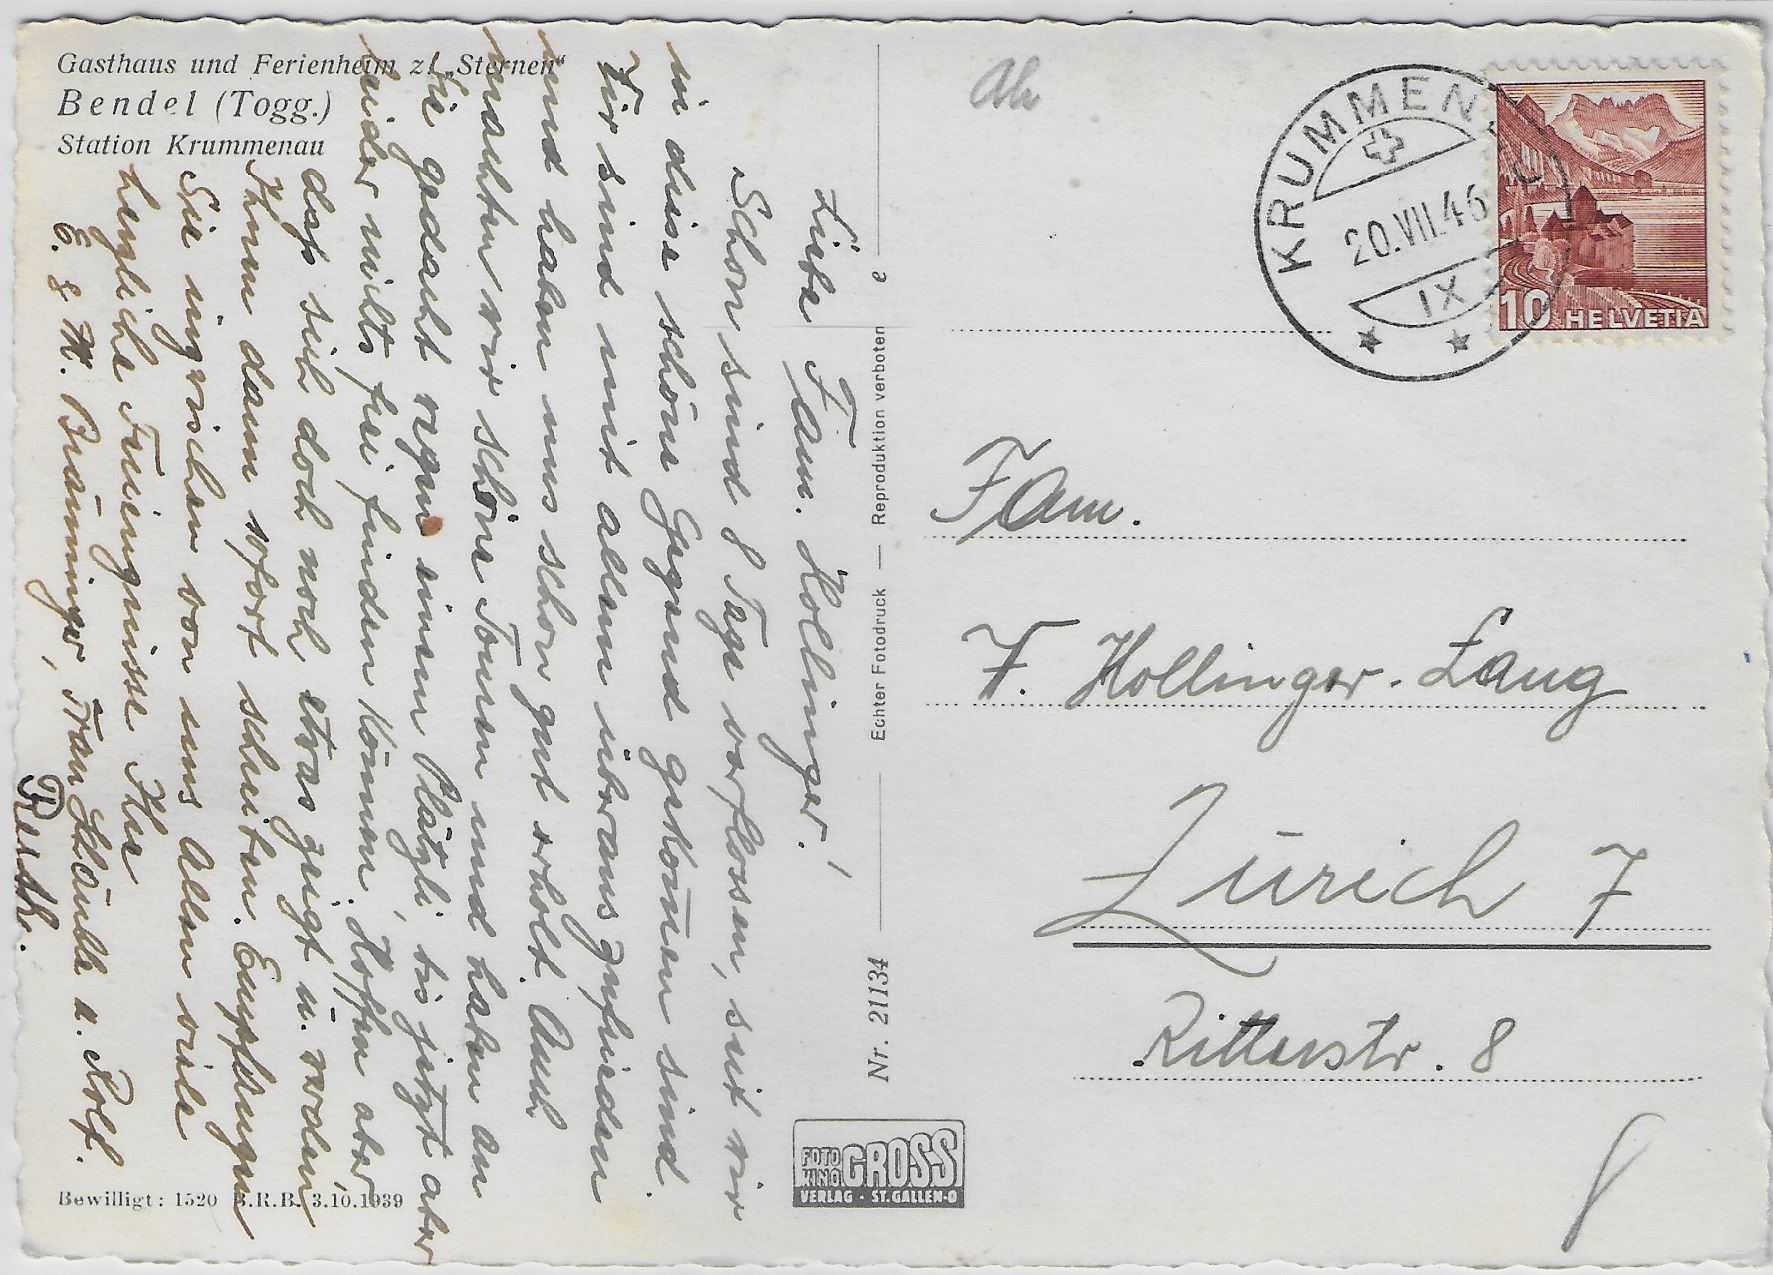 Gasthaus und Ferienheim z. „Sternen“
Bendel (Togg.)
Station Krummenau
Liebe Fam. Hollinger!
Schon sind 8 Tage verflossen, seit wir
in diese schöne Gegend gekom̄en sind.
Wir sind mit allem überaus zufrieden
und haben uns schon gut erholt. Auch
machten wir schöne Touren und haben an
Sie gedacht wegen einem Plätzli, bis jetzt aber
leider nichts frei finden können. Hoffen aber,
dass sich doch noch etwas zeigt u. werden
Ihnen dann sofort schreiben. Empfangen
Sie inzwischen von uns Allen viele
herzliche Feriengrüsse Ihre
E. & H. Bräuninger, Frau Stäuble u. Rolf.
Ruth.
Bewilligt: 1520 B.R.B. 3.10.1939
e — Reproduktion verboten — Echter Fotodruck
Nr. 21134
FOTO KINO GROSS
VERLAG · ST. GALLEN-O
KRUMMENAU
20.VII.46
IX
10 HELVETIA
Fam.
F. Hollinger-Lang
Zürich 7
Ritterstr. 8